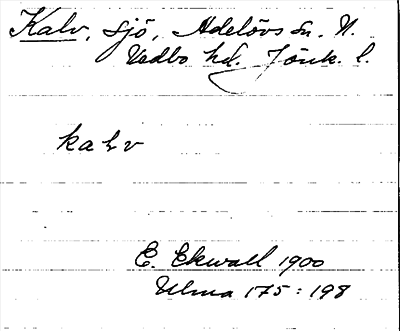 Kalv, sjö, Adelövs sn. N.
Vedbo hd. Jönk. l.
kalv
E. Ekwall 1900
Ulma 175:198